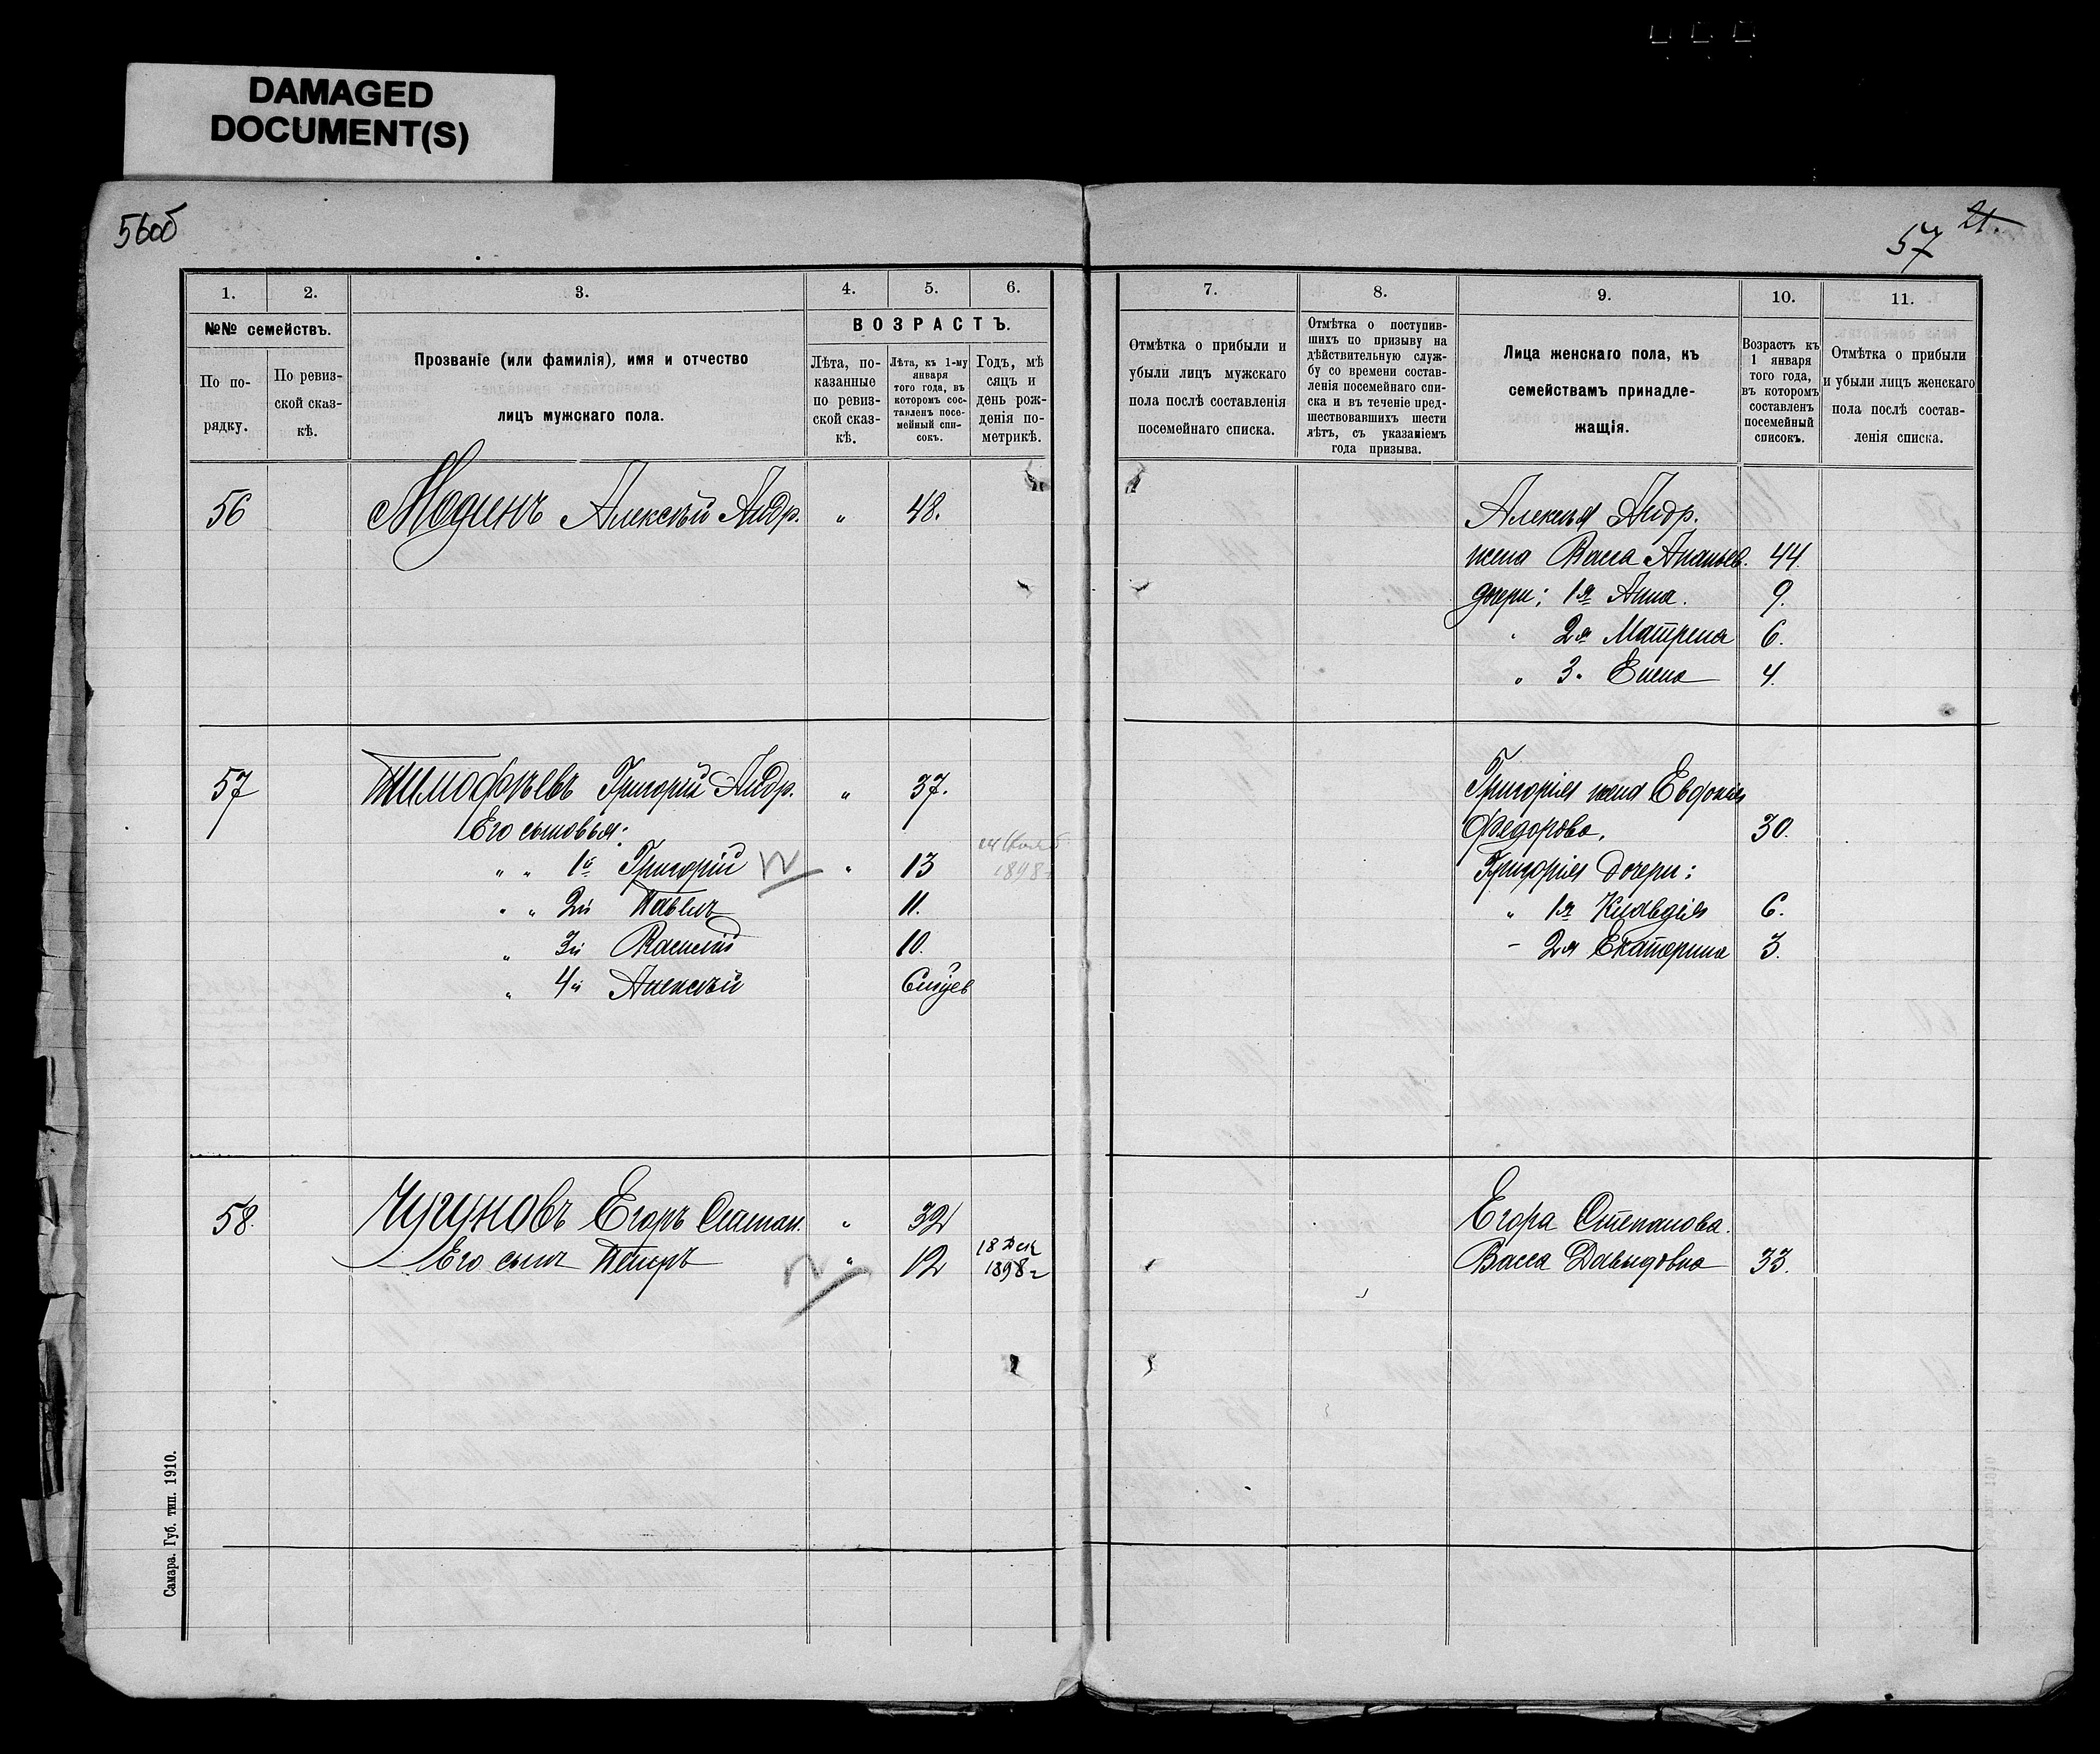 DAMAGED
DOCUMENT(S)
56об
21.
57
1.
2.
3.
4.
5.
6.
№№ семействъ.
По порядку.
По ревизской сказкѣ.
Прозваніе (или фамилія), имя и отчество
лицъ мужскаго пола.
ВОЗРАСТЪ.
Лѣта, показанные по ревизской сказкѣ.
Лѣта, къ 1-му января того года, въ которомъ составленъ посемейный списокъ.
Годъ, мѣсяцъ и день рожденія по метрикѣ.
7.
8.
9.
10.
11.
Отмѣтка о прибыли и
убыли лицъ мужскаго
пола послѣ составленія
посемейнаго списка.
Отмѣтка о поступившихъ по призыву на дѣйствительную службу со времени составленія посемейнаго списка и въ теченіе предшествовавшихъ шести лѣтъ, съ указаніемъ года призыва.
Лица женскаго пола, къ
семействамъ принадлежащія.
Возрастъ къ 1 января того года, въ которомъ составленъ посемейный списокъ.
Отмѣтка о прибыли
и убыли лицъ женскаго
пола послѣ составленія списка.
56 Модинъ Алексѣй Андр. " 48.
Алексѣя Андр.
жена Васса Ананьев. 44.
дочери: 1я Анна. 9.
" 2я Матрена 6.
" 3" Елена 4.
57 Тимофѣевъ Григорій Андр. " 37.
Его сыновья:
" " 1й Григорій " 13 1898г
" " 2й Павелъ 11.
" 3й Василій 10.
" 4й Алексѣй
Григорія жена Евдокія
Федорова. 30.
Григорія дочери:
" 1я Клавдія 6.
- 2я Екатерина 3.
58. Чугуновъ Егоръ Степан. " 32
Его сынъ Петръ " 12 18 Дек 1898г
Егора Степанова.
Васса Давыдовна 33.
Самара. Губ. тип. 1910.